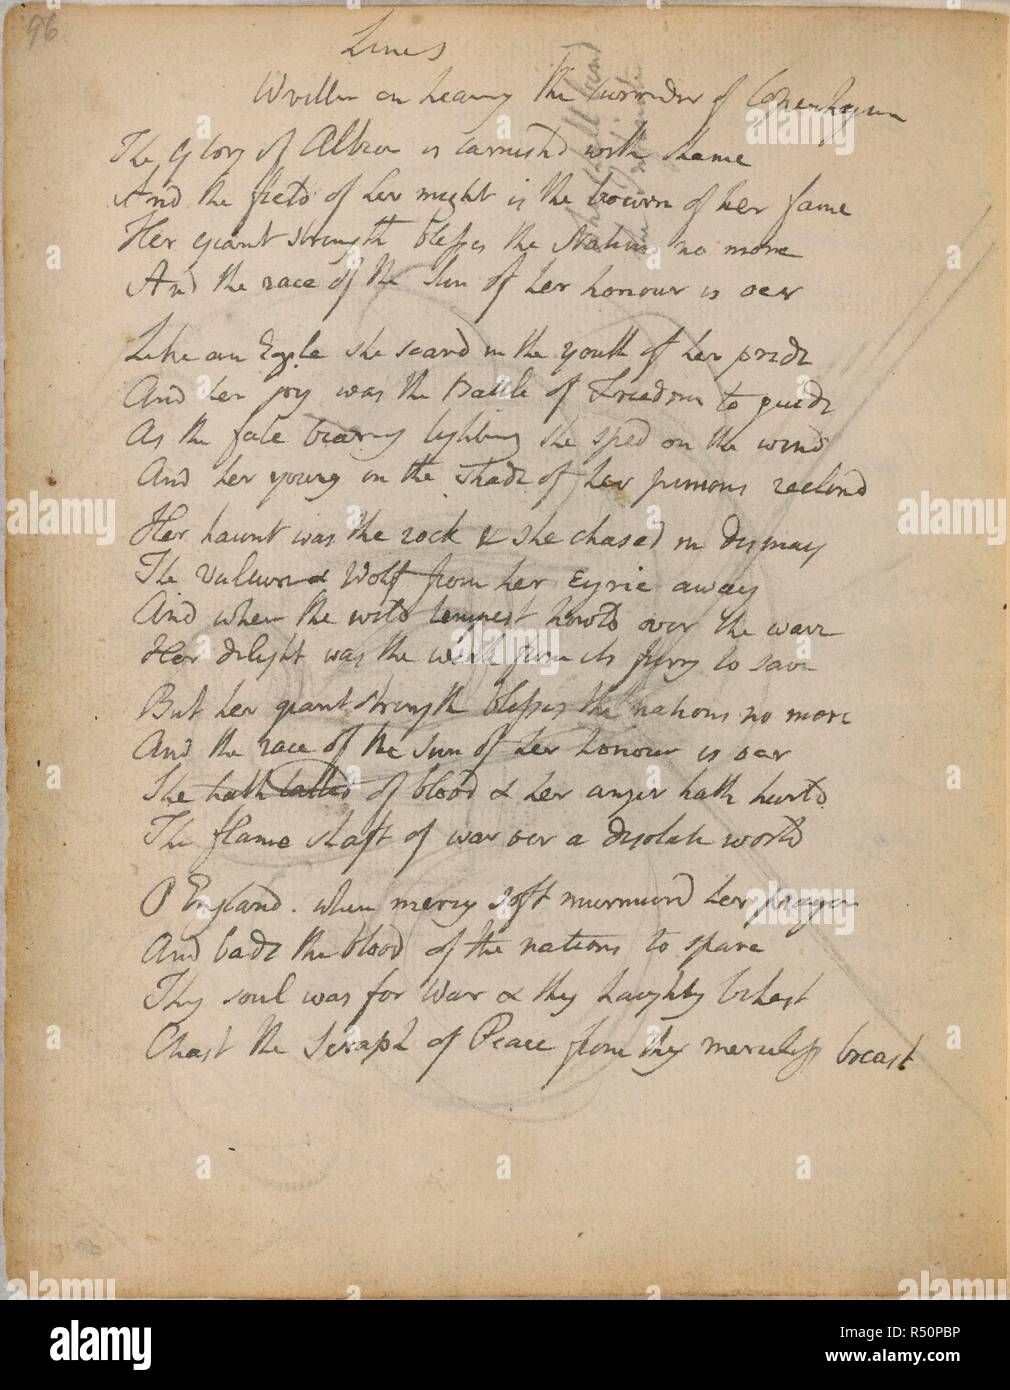 96
Lines
Written on hearing the surrender of Copenhagen
The Glory of Albion is tarnishd with shame
And the field of her might is the bourn of her fame
Her giant strength blesses the Nations no more
And the race of the Sun of her honour is oer
Like an Eagle she soard in the youth of her pride
And her joy was the Battle of Freedom to guide
As the fate bearing lightning she sped on the wind
And her young in the shade of her pinions reclind
Her haunt was the rock & she chased in dismay
The Vulture & Wolf from her Eyrie away
And when the wild tempest howld over the wave
Her delight was the weak from its fury to save
But her giant strength blesses the nations no more
And the race of the Sun of her honour is oer
She hath of blood & her anger hath hurld
The flame shaft of war oer a desolate world
O England. when mercy soft murmurd her prayer
And bade the blood of the nations to spare
Thy soul was for War & thy haughty behest
Chast the Seraph of Peace from thy merciless breast
alamy
Image ID: R50PBP
www.alamy.com